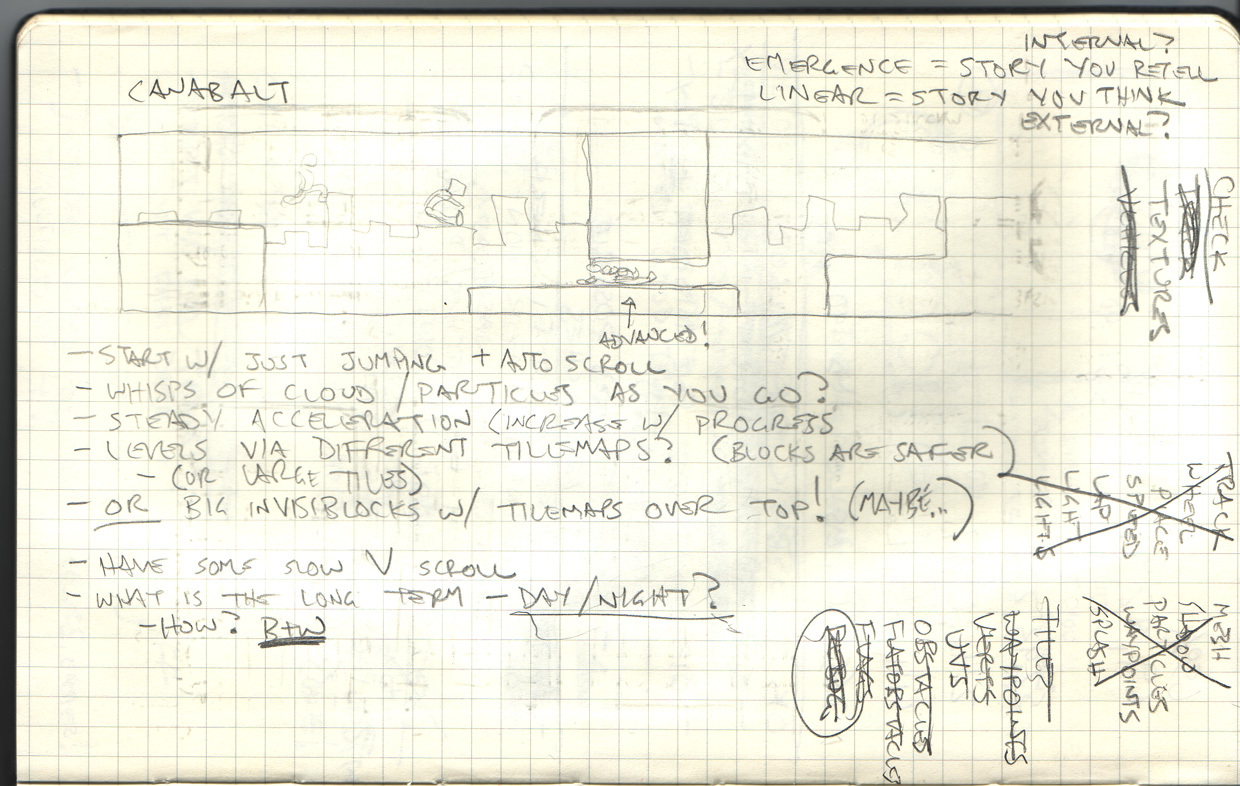 INTERNAL?
EMERGENCE = STORY YOU RETELL
LINEAR = STORY YOU THINK
EXTERNAL?
CANABALT
ADVANCED!
- START W/ JUST JUMPING + AUTO SCROLL
- WHISPS OF CLOUD / PARTICLES AS YOU GO?
- STEADY ACCELERATION (INCREASE W/ PROGRESS
- LEVELS VIA DIFFERENT TILEMAPS? (BLOCKS ARE SAFER)
- (OR LARGE TILES)
- OR BIG INVISIBLOCKS W/ TILEMAPS OVER TOP! (MAYBE...)
- HAVE SOME SLOW V SCROLL
- WHAT IS THE LONG TERM - DAY/NIGHT?
- HOW? B+W
CHECK
TEXTURES
VEHICLES
TRACK
WHEEL
PLACE
SPEED
LAP
LIGHT
LIGHTS
MESH
FLUID
PARTICLES
WAYPOINTS
SPLASH
TILES
WAYPOINTS
VERTS
UVS
OBSTACLES